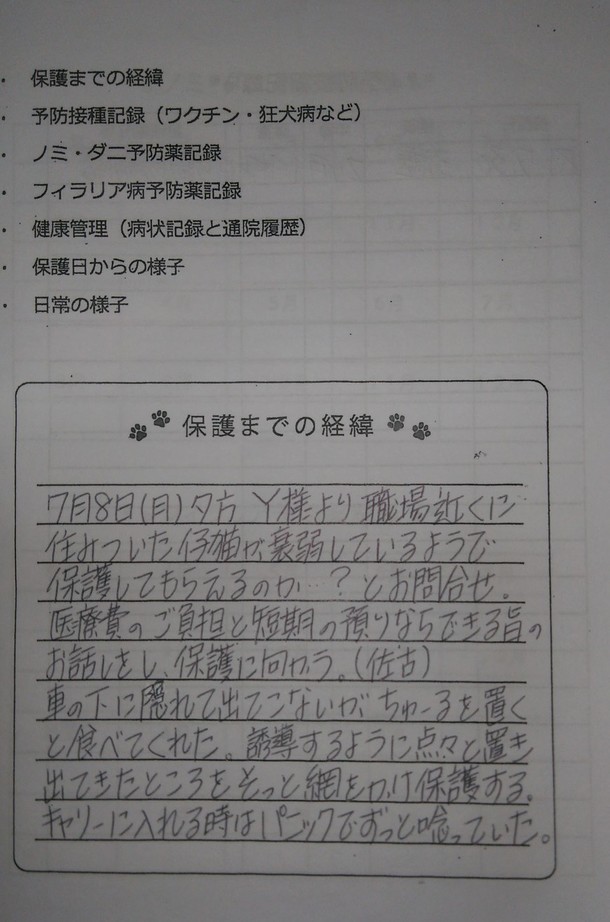 ・ 保護までの経緯
・ 予防接種記録（ワクチン・狂犬病など）
・ ノミ・ダニ予防薬記録
・ フィラリア病予防薬記録
・ 健康管理（病状記録と通院履歴）
・ 保護日からの様子
・ 日常の様子
保護までの経緯
7月8日(月)夕方 Y様より職場近くに
住みついた仔猫が衰弱しているようで
保護してもらえるのか…？とお問合せ。
医療費のご負担と短期の預りならできる旨の
お話しをし、保護に向かう。(佐古)
車の下に隠れて出てこないがちゅーるを置く
と食べてくれた。誘導するように点々と置き
出てきたところをそっと網をかけ保護する。
キャリーに入れる時はパニックでずっと唸っていた。